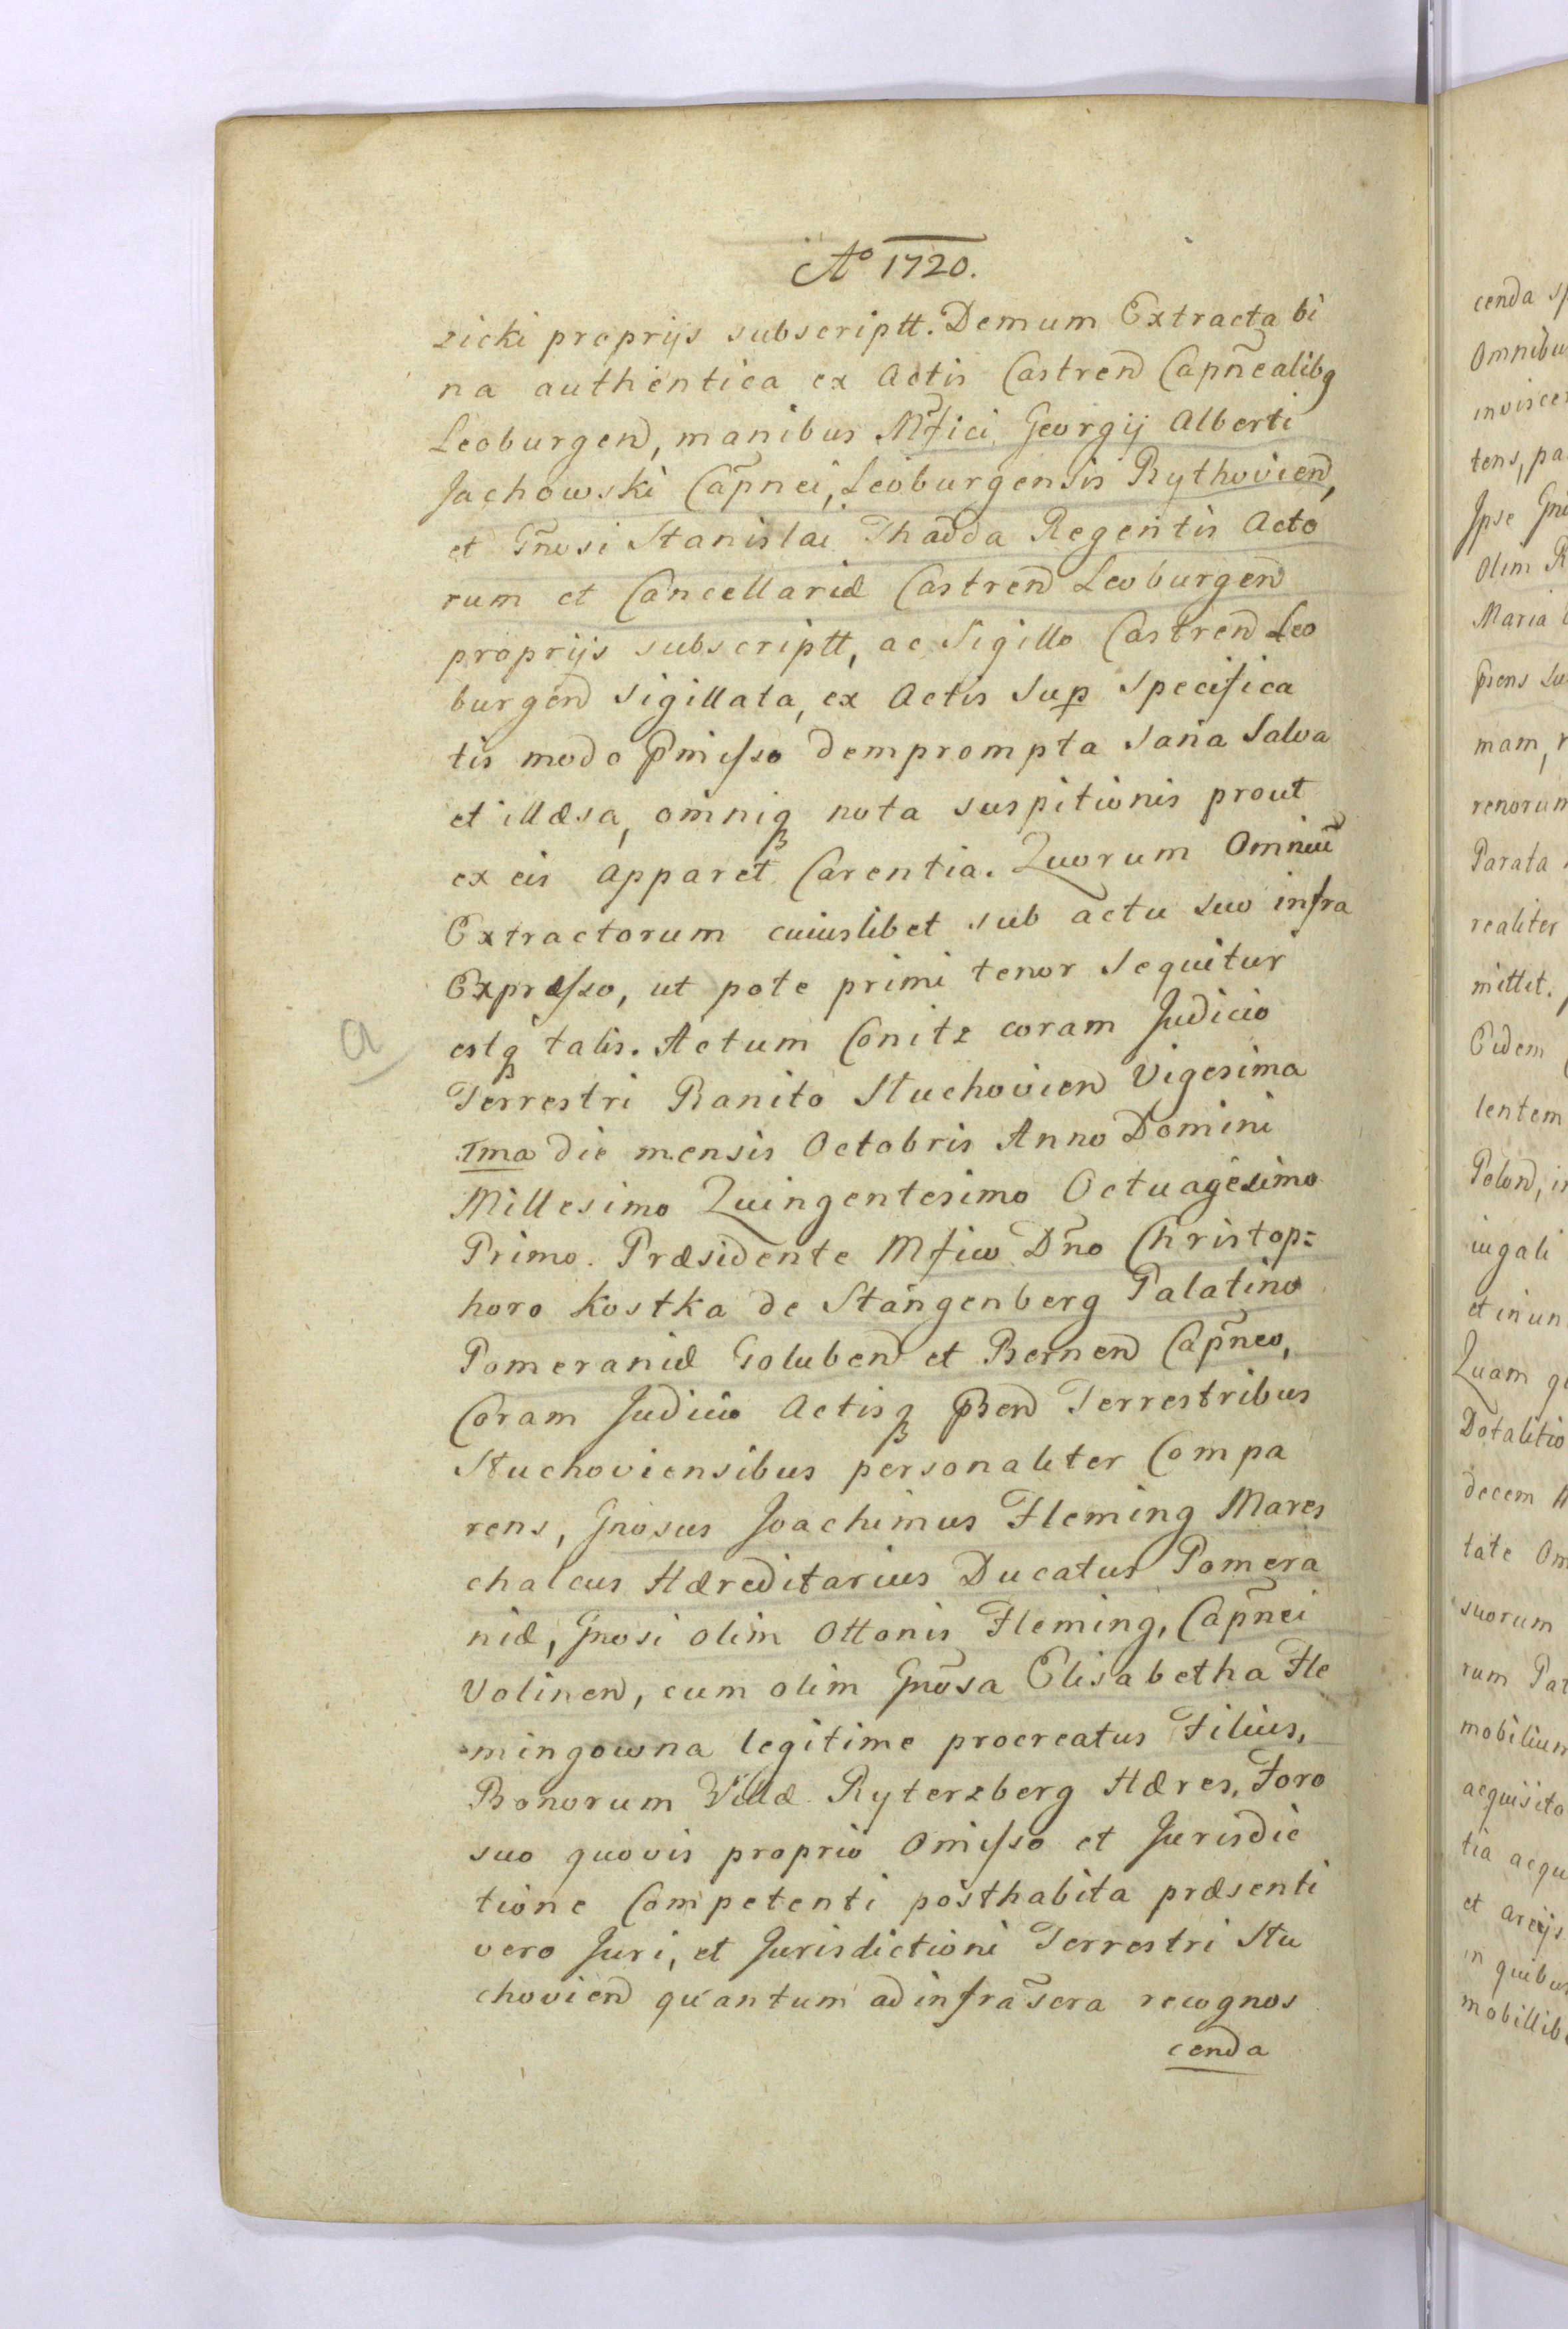 Aº 1720.
zicki proprijs subscriptt. Demum Extracta bi
na authentica ex Actis Castren Capñealibq
Leoburgen, manibus Mfici Georgij Alberti
Jachowski Capñei, Leoburgensis Rythovien,
et Gñosi Stanislai Thadda Regentis Acto
rum et Cancellariæ Castren Leoburgen
proprijs subscriptt, ac Sigillo Castren Leo
burgen Sigillata, ex Actis Sup Specifica
tis modo Pmisso demprompta Sana Salva
et illæsa, omniq nota suspitionis prout
ex eis apparet Carentia. Quorum Omniũ
Extractorum cuiuslibet sub actu suo infra
Expræsso, ut pote primi tenor Sequitur
estq talis. Actum Conitz coram Judicio
a
Terrestri Banito Stuchovien Vigesima
1ma die mensis Octobris Anno Domini
Millesimo Quingentesimo Octuagesimo
Primo. Præsidente Mfico Dño Christop=
horo Kostka de Stangenberg Palatino
Pomeraniæ Goluben et Bernen Capñeo,
Coram Judicio Actisq PBen Terrestribus
Stuchoviensibus personaliter Compa
rens, Gnosus Joachimus Fleming Mares
chalcus Hæreditarius Ducatus Pomera
niæ, Gnosi olim Ottonis Fleming, Capñei
Volinen, cum olim Gnõsa Elisabetha Fle
mingowna legitime procreatus Filius,
Bonorum Villæ Ryterzberg Hæres, Foro
suo quovis proprio Omisso et Jurisdic
tione Competenti posthabita præsenti
vero Juri, et Jurisdictioni Terrestri Stu
chovien quantum ad infrãscra recognos
cenda
cenda
Omnibu
tens, pa
Ipse
Olim
Maria
mam,
renorum
Parata
realiter
mittet.
Eidem
lentem
iugali
et in un
Quam
Dotalitio
decem
tate
suorum
rum
mobilium
acquisito
tia acqu
et
in quibus